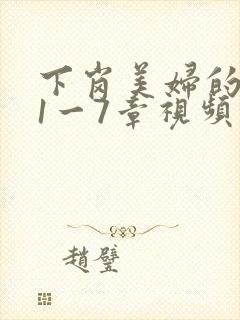 下岗美婦的
1一7章視頻
趙璧